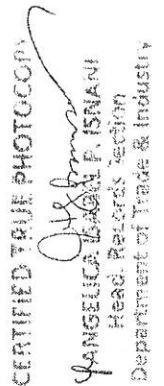 CERTIFIED TRUE PHOTOCOPY
ANGELICA ISABEL P. ISNANI
Head, Records Section
Department of Trade & Industry